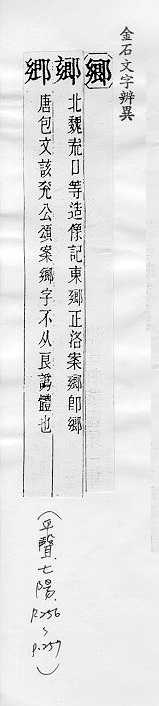 金石文字辨異
鄉
鄉 北魏兖口等造像記東鄉正洛案鄉即鄉
鄉 唐包文該兖公頌案鄉字不从良譌體也
(平聲七陽 P.256~P.257)